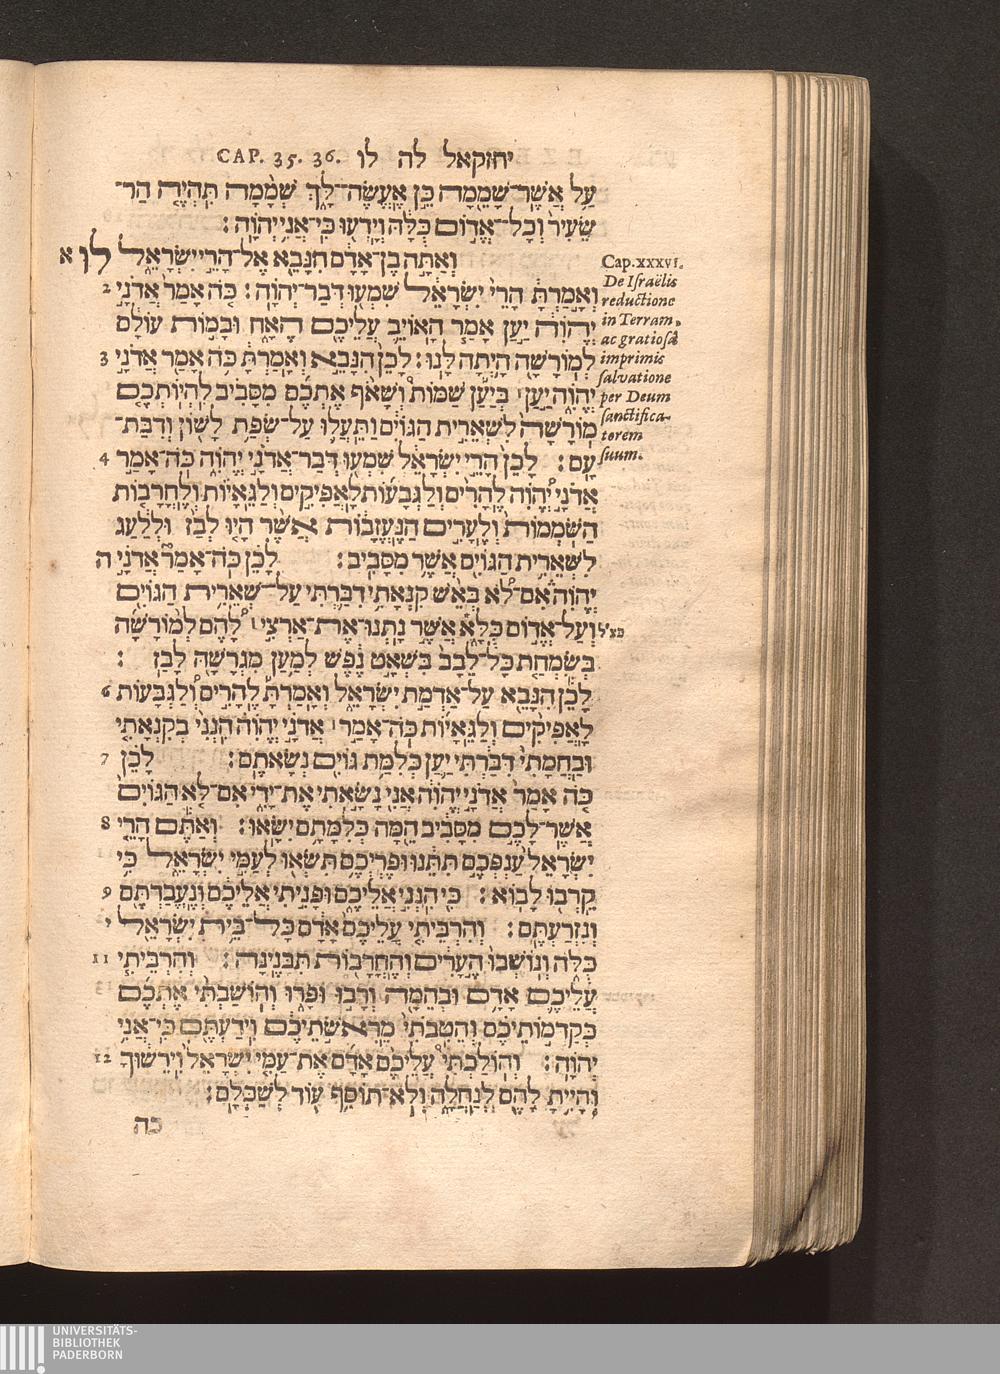 יחזקאל לה לו CAP. 35. 36.
עַל אֲשֶׁר־שָׁמֵמָה כֵּן אֶעֱשֶׂה־לָּךְ שְׁמָמָה תִּהְיֶה הַר־
שֵׂעִיר וְכָל־אֱדוֹם כֻּלָּהּ וְיָדְעוּ כִּי־אֲנִי יְהוָֹה׃
לו א וְאַתָּה בֶן־אָדָם הִנָּבֵא אֶל־הָרֵי יִשְׂרָאֵל
וְאָמַרְתָּ הָרֵי יִשְׂרָאֵל שִׁמְעוּ דְּבַר־יְהוָֹה׃ כֹּה אָמַר אֲדֹנָי 2
יְהֹוִה יַעַן אָמַר הָאוֹיֵב עֲלֵיכֶם הֶאָח וּבָמוֹת עוֹלָם
לְמוֹרָשָׁה הָיְתָה לָּנוּ׃ לָכֵן הִנָּבֵא וְאָמַרְתָּ כֹּה אָמַר אֲדֹנָי 3
יֱהֹוִה יַעַן בְּיַעַן שַׁמּוֹת וְשָׁאֹף אֶתְכֶם מִסָּבִיב לִהְיוֹתְכֶם
מוֹרָשָׁה לִשְׁאֵרִית הַגּוֹיִם וַתֵּעֲלוּ עַל־שְׂפַת לָשׁוֹן וְדִבַּת־
עָם׃ לָכֵן הָרֵי יִשְׂרָאֵל שִׁמְעוּ דְּבַר־אֲדֹנָי יֱהֹוִה כֹּה־אָמַר 4
אֲדֹנָי יֱהֹוִה לֶהָרִים וְלַגְּבָעוֹת לָאֲפִיקִים וְלַגֵּאָיוֹת וְלֶחֳרָבוֹת
הַשֹּׁמְמוֹת וְלֶעָרִים הַנֶּעֱזָבוֹת אֲשֶׁר הָיוּ לְבַז וּלְלַעַג
לִשְׁאֵרִית הַגּוֹיִם אֲשֶׁר מִסָּבִיב׃ לָכֵן כֹּה־אָמַר אֲדֹנָי ה
יֱהֹוִה אִם־לֹא בְּאֵשׁ קִנְאָתִי דִבַּרְתִּי עַל־שְׁאֵרִית הַגּוֹיִם
וְעַל־אֱדוֹם כֻּלָּא אֲשֶׁר נָתְנוּ־אֶת־אַרְצִי לָהֶם לְמוֹרָשָׁה
בְּשִׂמְחַת כָּל־לֵבָב בִּשְׁאָט נֶפֶשׁ לְמַעַן מִגְרָשָׁהּ לָבַז׃
לָכֵן הִנָּבֵא עַל־אַדְמַת יִשְׂרָאֵל וְאָמַרְתָּ לֶהָרִים וְלַגְּבָעוֹת 6
לָאֲפִיקִים וְלַגֵּאָיוֹת כֹּה־אָמַר אֲדֹנָי יֱהֹוִה הִנְנִי בְקִנְאָתִי
וּבַחֲמָתִי דִּבַּרְתִּי יַעַן כְּלִמַּת גּוֹיִם נְשָׂאתֶם׃ לָכֵן 7
כֹּה אָמַר אֲדֹנָי יֱהֹוִה אֲנִי נָשָׂאתִי אֶת־יָדִי אִם־לֹא הַגּוֹיִם
אֲשֶׁר־לָכֶם מִסָּבִיב הֵמָּה כְּלִמָּתָם יִשָּׂאוּ׃ וְאַתֶּם הָרֵי 8
יִשְׂרָאֵל עַנְפְּכֶם תִּתֵּנוּ וּפֶרְיְכֶם תִּשְׂאוּ לְעַמִּי יִשְׂרָאֵל כִּי
קֵרְבוּ לָבוֹא׃ כִּי הִנְנִי אֲלֵיכֶם וּפָנִיתִי אֲלֵיכֶם וְנֶעֱבַדְתֶּם 9
וְנִזְרַעְתֶּם׃ וְהִרְבֵּיתִי עֲלֵיכֶם אָדָם כָּל־בֵּית יִשְׂרָאֵל י
כֻּלֹּה וְנוֹשְׁבוּ הֶעָרִים וְהֶחֳרָבוֹת תִּבָּנֶינָה׃ וְהִרְבֵּיתִי 11
עֲלֵיכֶם אָדָם וּבְהֵמָה וְרָבוּ וּפָרוּ וְהוֹשַׁבְתִּי אֶתְכֶם
כְּקַדְמוֹתֵיכֶם וְהֵטִבֹתִי מֵרִאשֹׁתֵיכֶם וִידַעְתֶּם כִּי־אֲנִי
יְהוָֹה׃ וְהוֹלַכְתִּי עֲלֵיכֶם אָדָם אֶת־עַמִּי יִשְׂרָאֵל וִירֵשׁוּךָ 12
וְהָיִיתָ לָהֶם לְנַחֲלָה וְלֹא־תוֹסִף עוֹד לְשַׁכְּלָם׃
כה
Cap. XXXVI.
De Israëlis
reductione
in Terram,
ac gratiosâ
imprimis
salvatione
per Deum
sanctifica-
torem
suum.
UNIVERSITÄTS-
BIBLIOTHEK
PADERBORN